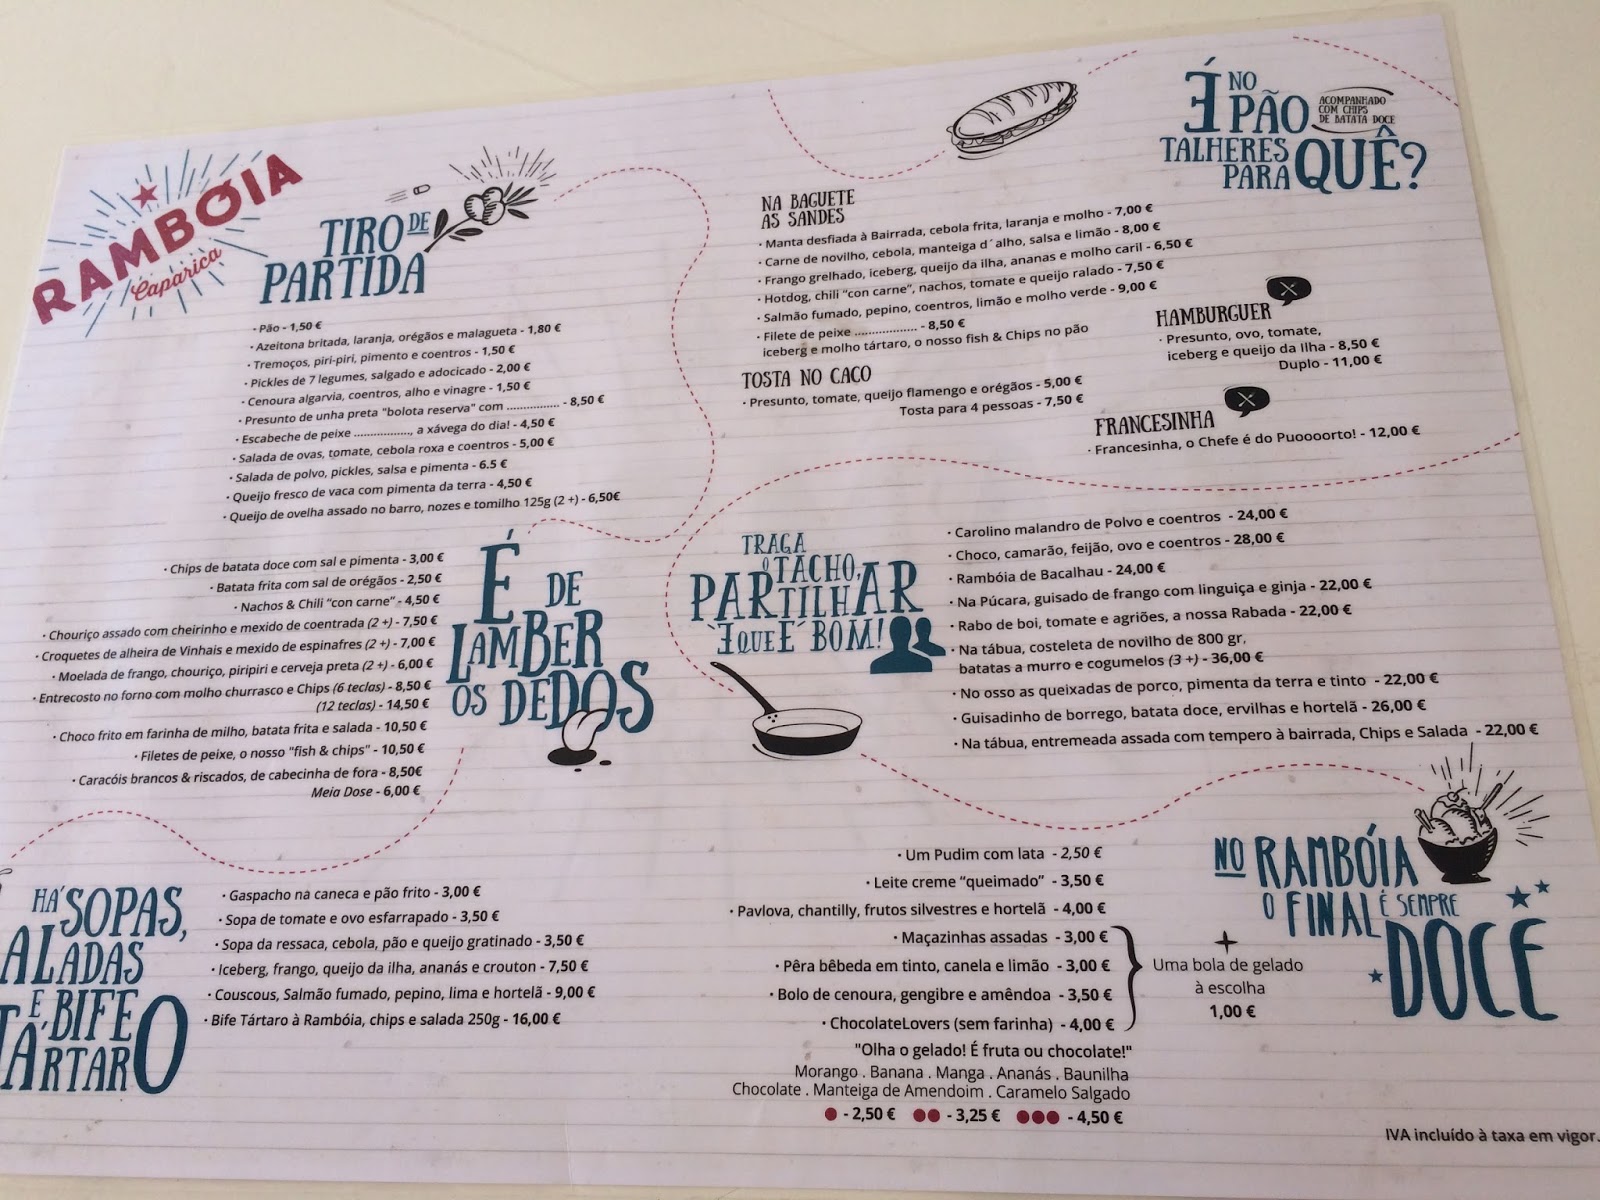 RAMBÓIA
Caparica
TIRO DE
PARTIDA
· Pão - 1,50 €
· Azeitona britada, laranja, orégãos e malagueta - 1,80 €
· Tremoços, piri-piri, pimento e coentros - 1,50 €
· Pickles de 7 legumes, salgado e adocicado - 2,00 €
· Cenoura algarvia, coentros, alho e vinagre - 1,50 €
· Presunto de unha preta "bolota reserva" com ................ - 8,50 €
· Escabeche de peixe ................., a xávega do dia! - 4,50 €
· Salada de ovas, tomate, cebola roxa e coentros - 5,00 €
· Salada de polvo, pickles, salsa e pimenta - 6.5 €
· Queijo fresco de vaca com pimenta da terra - 4,50 €
· Queijo de ovelha assado no barro, nozes e tomilho 125g (2 +) - 6,50€
É DE
LAMBER
OS DEDOS
· Chips de batata doce com sal e pimenta - 3,00 €
· Batata frita com sal de orégãos - 2,50 €
· Nachos & Chili “con carne” - 4,50 €
· Chouriço assado com cheirinho e mexido de coentrada (2 +) - 7,50 €
· Croquetes de alheira de Vinhais e mexido de espinafres (2 +) - 7,00 €
· Moelada de frango, chouriço, piripiri e cerveja preta (2 +) - 6,00 €
· Entrecosto no forno com molho churrasco e Chips (6 teclas) - 8,50 €
(12 teclas) - 14,50 €
· Choco frito em farinha de milho, batata frita e salada - 10,50 €
· Filetes de peixe, o nosso "fish & chips" - 10,50 €
· Caracóis brancos & riscados, de cabecinha de fora - 8,50€
Meia Dose - 6,00 €
HÁ SOPAS,
ALADAS
E BIFE
TÁRTARO
· Gaspacho na caneca e pão frito - 3,00 €
· Sopa de tomate e ovo esfarrapado - 3,50 €
· Sopa da ressaca, cebola, pão e queijo gratinado - 3,50 €
· Iceberg, frango, queijo da ilha, ananás e crouton - 7,50 €
· Couscous, Salmão fumado, pepino, lima e hortelã - 9,00 €
· Bife Tártaro à Rambóia, chips e salada 250g - 16,00 €
É NO
PÃO
TALHERES
PARA QUÊ?
ACOMPANHADO
COM CHIPS
DE BATATA DOCE
NA BAGUETE
AS SANDES
· Manta desfiada à Bairrada, cebola frita, laranja e molho - 7,00 €
· Carne de novilho, cebola, manteiga d´alho, salsa e limão - 8,00 €
· Frango grelhado, iceberg, queijo da ilha, ananas e molho caril - 6,50 €
· Hotdog, chili “con carne”, nachos, tomate e queijo ralado - 7,50 €
· Salmão fumado, pepino, coentros, limão e molho verde - 9,00 €
· Filete de peixe .................. - 8,50 €
iceberg e molho tártaro, o nosso fish & Chips no pão
TOSTA NO CACO
· Presunto, tomate, queijo flamengo e orégãos - 5,00 €
Tosta para 4 pessoas - 7,50 €
HAMBURGUER
· Presunto, ovo, tomate,
iceberg e queijo da Ilha - 8,50 €
Duplo - 11,00 €
FRANCESINHA
· Francesinha, o Chefe é do Puoooorto! - 12,00 €
TRAGA
O TACHO,
PARTILHAR
`É QUE É´ BOM!
· Carolino malandro de Polvo e coentros - 24,00 €
· Choco, camarão, feijão, ovo e coentros - 28,00 €
· Rambóia de Bacalhau - 24,00 €
· Na Púcara, guisado de frango com linguiça e ginja - 22,00 €
· Rabo de boi, tomate e agriões, a nossa Rabada - 22,00 €
· Na tábua, costeleta de novilho de 800 gr,
batatas a murro e cogumelos (3 +) - 36,00 €
· No osso as queixadas de porco, pimenta da terra e tinto - 22,00 €
· Guisadinho de borrego, batata doce, ervilhas e hortelã - 26,00 €
· Na tábua, entremeada assada com tempero à bairrada, Chips e Salada - 22,00 €
NO RAMBÓIA
O FINAL É SEMPRE
DOCE
· Um Pudim com lata - 2,50 €
· Leite creme “queimado” - 3,50 €
· Pavlova, chantilly, frutos silvestres e hortelã - 4,00 €
· Maçazinhas assadas - 3,00 €
· Pêra bêbeda em tinto, canela e limão - 3,00 €
· Bolo de cenoura, gengibre e amêndoa - 3,50 €
· ChocolateLovers (sem farinha) - 4,00 €
+
Uma bola de gelado
à escolha
1,00 €
"Olha o gelado! É fruta ou chocolate!"
Morango . Banana . Manga . Ananás . Baunilha
Chocolate . Manteiga de Amendoim . Caramelo Salgado
● - 2,50 € ●● - 3,25 € ●●● - 4,50 €
IVA incluído à taxa em vigor.